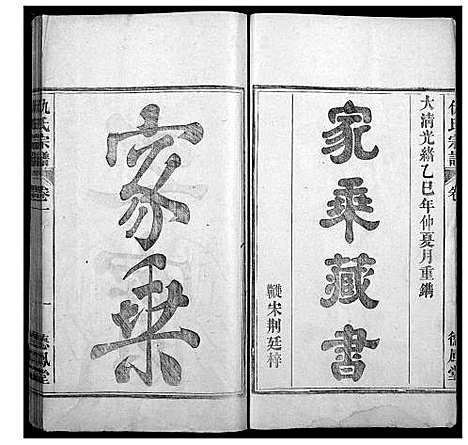 氏宗譜
卷
大清光緒乙巳年仲夏月重鐫
家乘藏書
宋荆廷梓
家乘
仇氏宗譜 卷一 一 德鳳堂